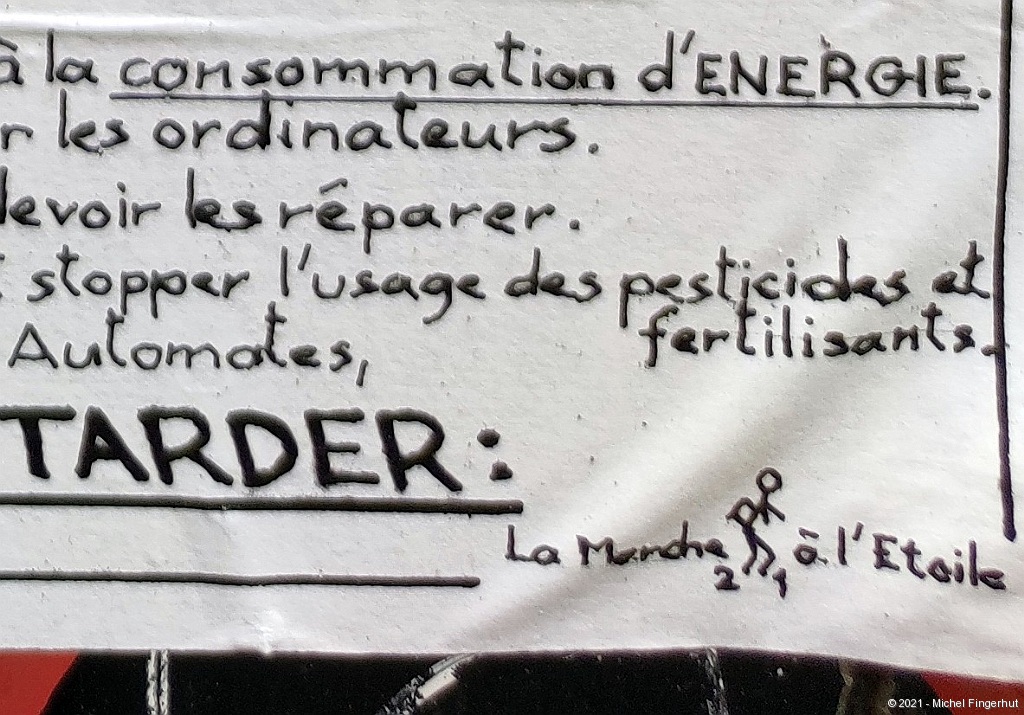 à la consommation d'ENERGIE.
r les ordinateurs.
devoir les réparer.
stopper l'usage des pesticides et
fertilisants.
Automates,
TARDER:
La Marche à l'Etoile
2 1
© 2021 - Michel Fingerhut